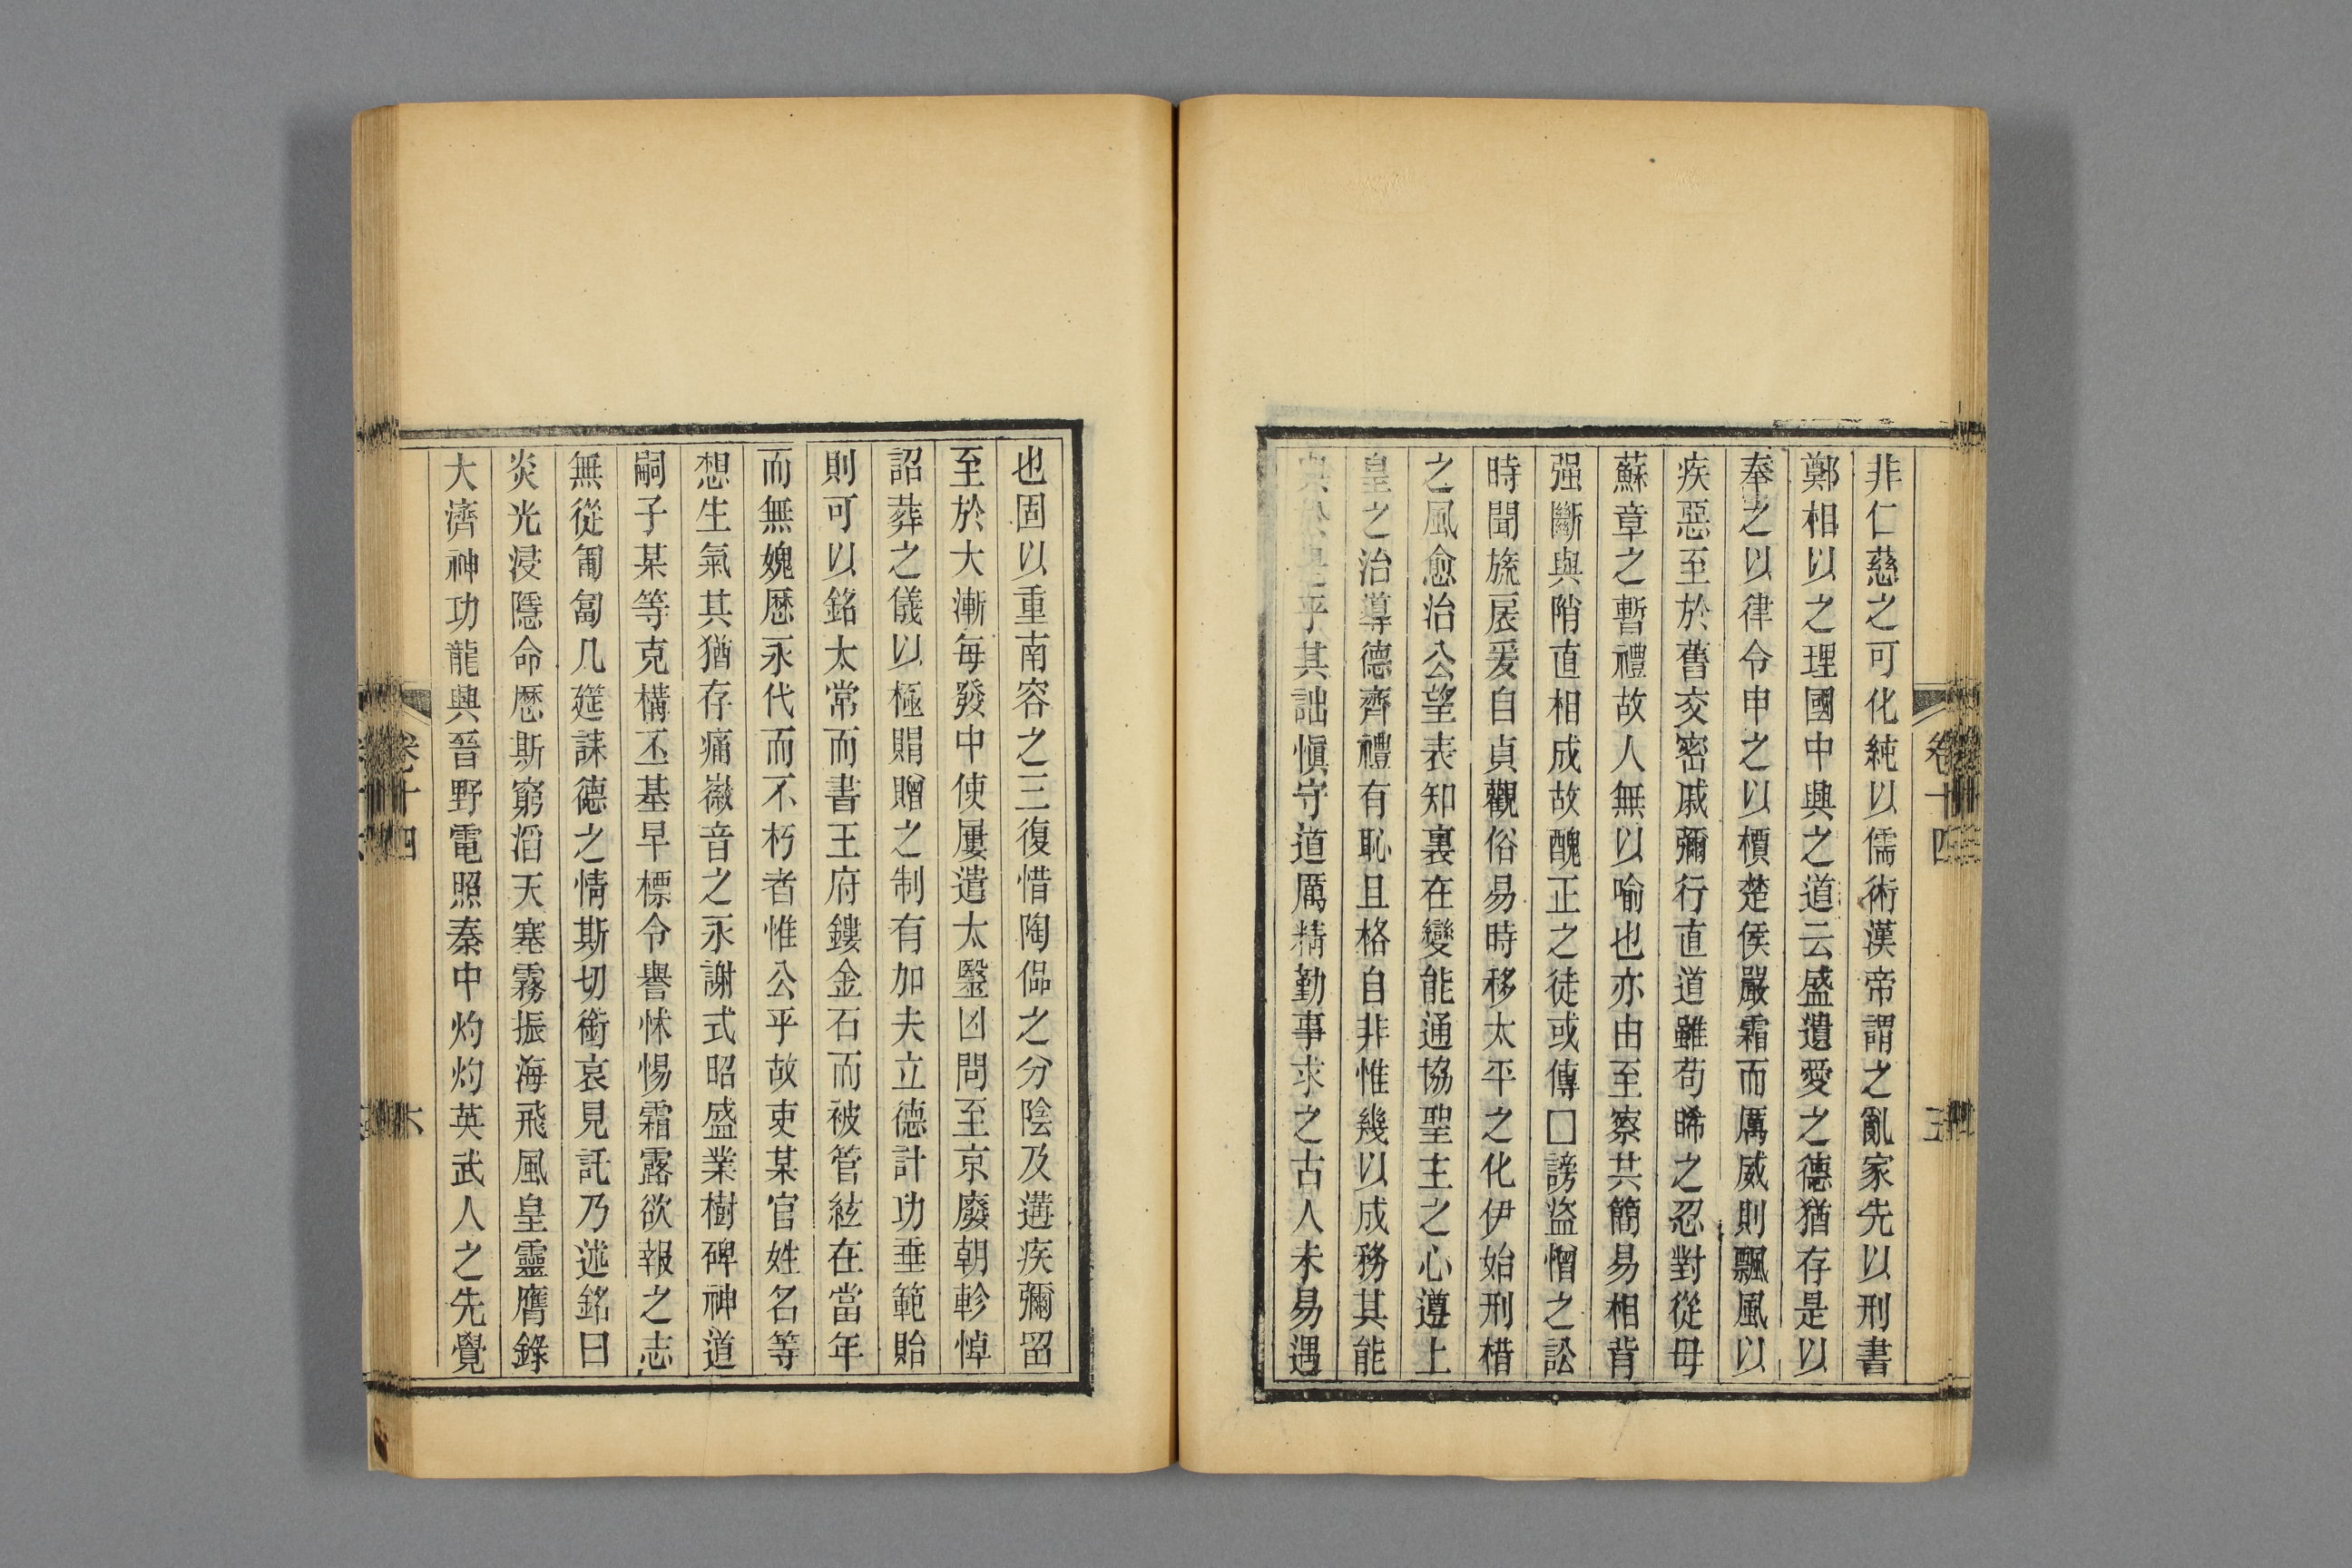 非仁慈之可化純以儒術漢帝謂之亂家先以刑書
鄭相以之理國中興之道云盛遺愛之德猶存是以
奉之以律令申之以檟楚侯嚴霜而厲威則飄風以
疾惡至於舊交密戚彌行直道雖苟晞之忍對從母
蘇章之暫禮故人無以喻也亦由至察共簡易相背
强斷與陗直相成故醜正之徒或傳□謗盜憎之訟
時聞旒扆爰自貞觀俗易時移太平之化伊始刑楷
之風愈治公望表知裏在變能通協聖主之心遵上
皇之治導德齊禮有恥且格自非惟幾以成務其能
乎其詘愼守道厲精勤事求之古人未易遇
卷十四
五
也固以重南容之三復惜陶侃之分陰及遘疾彌留
至於大漸每發中使屢遣太毉凶問至京廢朝軫悼
詔葬之儀以極賵贈之制有加夫立德計功垂範貽
則可以銘太常而書王府鏤金石而被管絃在當年
而無媿歷永代而不朽者惟公乎故吏某官姓名等
想生氣其猶存痛徽音之永謝式昭盛業樹碑神道
嗣子某等克構丕基早標令譽怵惕霜露欲報之志
無從匍匐几筵誄德之情斯切銜哀見託乃述銘曰
炎光浸隱命歷斯窮滔天塞霧振海飛風皇靈膺錄
大濟神功龍興晉野電照秦中灼灼英武人之先覺
卷十四
六